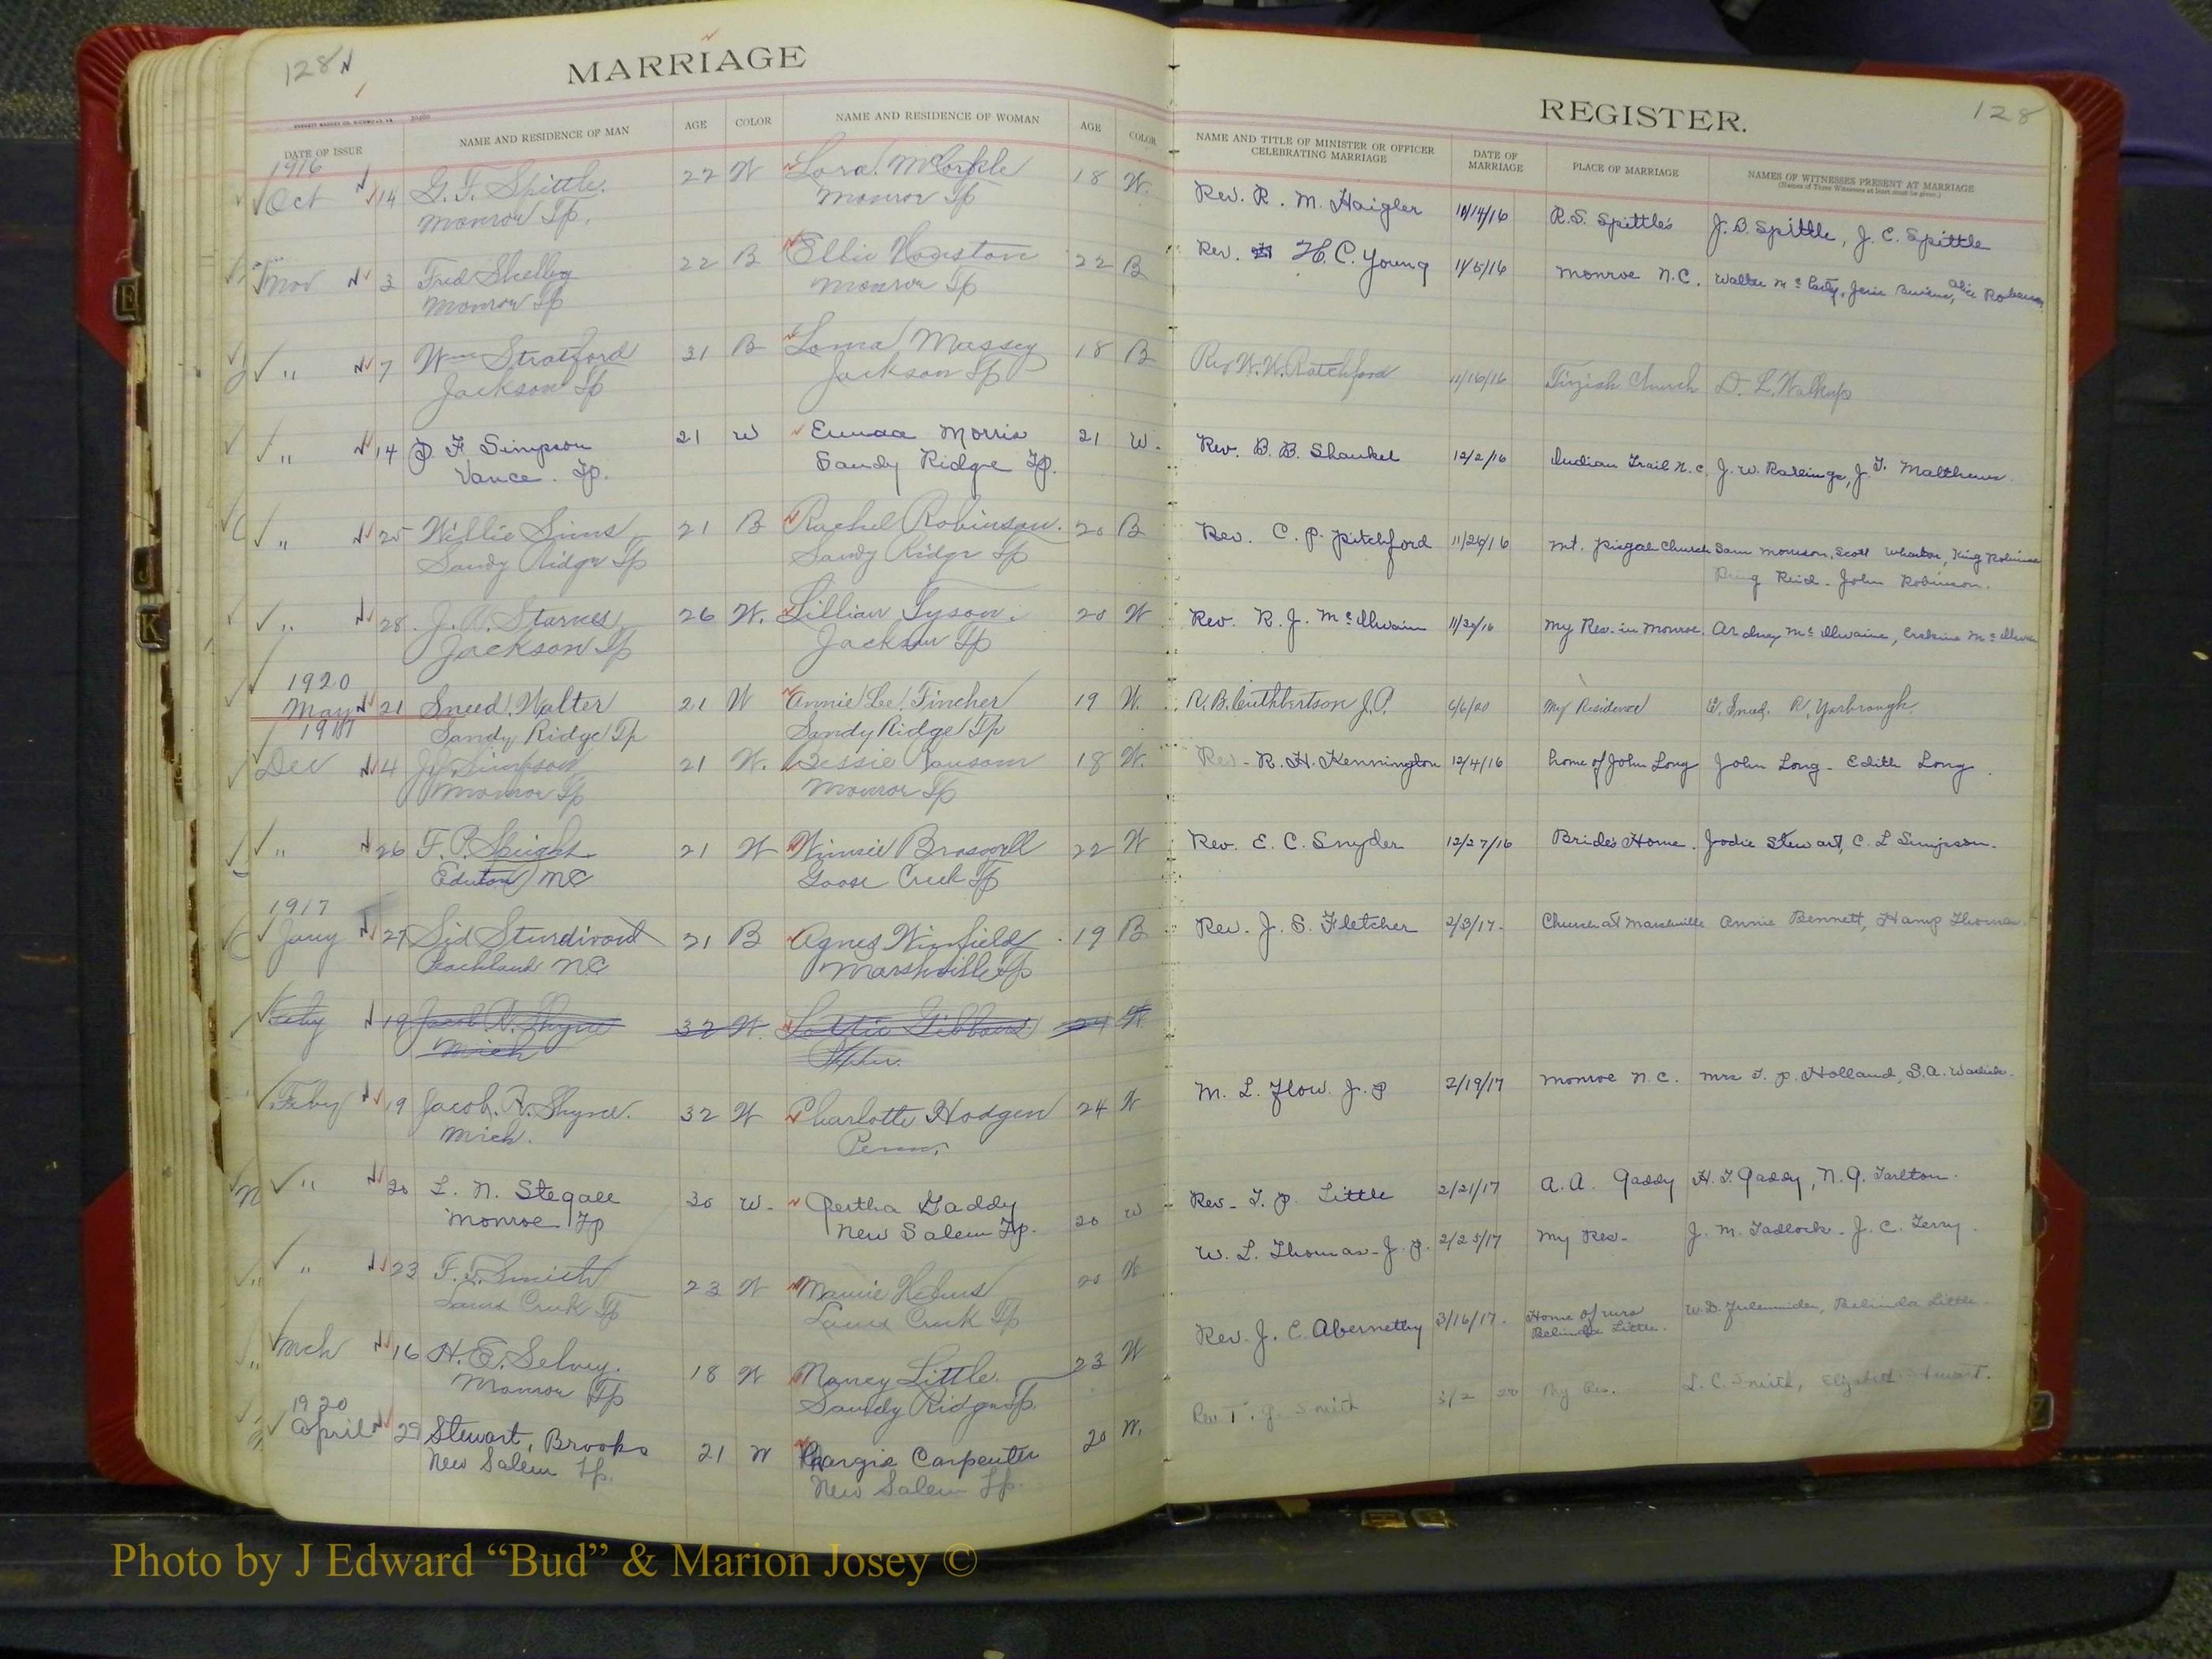 128
MARRIAGE
DATE OF ISSUE NAME AND RESIDENCE OF MAN AGE COLOR NAME AND RESIDENCE OF WOMAN AGE COLOR
1916
Oct 14 G. F. Spittle 22 W Lora McCorkle 18 W.
Monroe Tp. Monroe Tp
Nov 3 Fred Shelby 22 B Ellie Houston 22 B
Monroe Tp Monroe Tp
" 7 Wm Stratford 31 B Loma Massey 18 B
Jackson Tp Jackson Tp
" 14 P. F. Simpson 21 W Emma Morris 21 W.
Vance. Tp. Sandy Ridge Tp.
" 25 Willie Sims 21 B Rachel Robinson. 20 B
Sandy Ridge Tp Sandy Ridge Tp
" 28 Starnes 26 W. Lillian Tyson 20 W
Jackson Tp Jackson Tp
1920
May 21 Sneed, Walter 21 W Annie Lee Fincher 19 W.
Sandy Ridge Tp Sandy Ridge Tp
Dec 4 Simpson 21 W. Bessie 18 W.
Monroe Tp Monroe Tp
" 26 F. P. 21 W Winnie Braswell 22 W
Goose Creek Tp
1917
Jany 27 Sid Sturdivant 21 B Agnes Winfield 19 B
Peachland NC Marshville Tp
Feby 19 Jacob A. Shyne 32 W. 24 W
Mich
Feby 19 Jacob A. Shyne. 32 W Charlotte Hodgen 24 W
Mich. Penn.
" 20 L. N. Stegall 30 W. Bertha Gaddy 20 W
Monroe Tp New Salem Tp.
" 23 F. T. Smith 23 W Mamie Helms 20 W
Lanes Creek Tp Lanes Creek Tp
Mch 16 H. E. 18 W Nancy Little 23 W
Monroe Tp Sandy Ridge Tp.
1920
April 29 Stewart, Brooks 21 W Margie Carpenter 20 W.
New Salem Tp. New Salem Tp.
REGISTER. 128
NAME AND TITLE OF MINISTER OR OFFICER CELEBRATING MARRIAGE DATE OF MARRIAGE PLACE OF MARRIAGE NAMES OF WITNESSES PRESENT AT MARRIAGE
(Names of Three Witnesses at least must be given.)
Rev. R. M. Haigler 10/14/16 R.S. Spittle's J. B. Spittle, J. C. Spittle
Rev. H. C. Young 11/5/16 Monroe N.C. Walter Alice
Rev W. W. Ratchford 11/16/16 Tirzah Church D. L. Walkup
Rev. B. B. Shankel 12/2/16 Indian Trail N.C. J. W. Rallings, J. T. Matthews
Rev. C. P. Pitchford 11/26/16 Mt. Pisgah Church Sam Morrison, Scott King
Reid - John Robinson.
Rev. R. J. McIlwain 11/30/16 My Res. in Monroe. McIlwaine, Erskine
A. B. Cuthbertson J.P. 6/6/20 My Residence Sneed. R. Yarbrough
Rev - R. H. Kennington 12/4/16 home of John Long John Long - Edith Long.
Rev. E. C. Snyder 12/27/16 Bride's Home. Jodie Stewart, C. L Simpson.
Rev. J. S. Fletcher 2/3/17. Church at Marshville Annie Bennett, Hamp Thomas.
M. L. Flow. J. P 2/19/17 Monroe N.C. Mrs T. P. Holland, S. A.
Rev - T. P. Little 2/21/17 A. A. Gaddy H. T. Gaddy, N. G. Tarlton.
W. L. Thomas - J. P. 2/25/17 My Res - J. M. Tadlock - J. C. Terry.
Rev. J. C. Abernethy 3/16/17. Home of Mrs W. D. Belinda Little.
Belinda Little.
Rev T. J. Smith My Res. L. C. Smith, Elizabeth Stewart.
E
J
K
Photo by J Edward “Bud” & Marion Josey ©